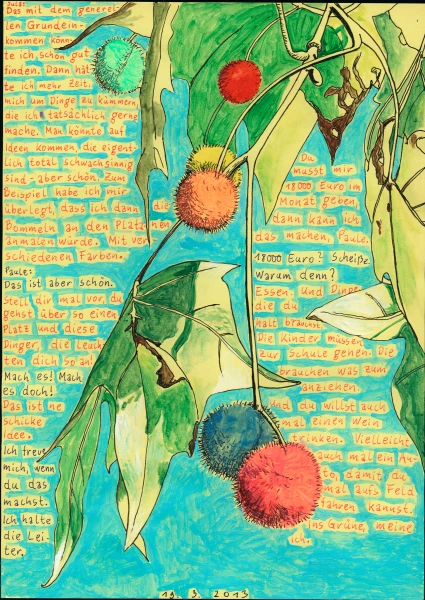 Julă:
Das mit dem generel-
len Grundein-
kommen könn-
te ich schon gut
finden. Dann hät-
te ich mehr Zeit,
mich um Dinge zu kümmern,
die ich tatsächlich gerne
mache. Man könnte auf
Ideen kommen, die eigent-
lich total schwachsinnig
sind - aber schön. Zum
Beispiel habe ich mir
überlegt, dass ich dann die
Bommeln an den Platanen
anmalen würde. Mit ver-
schiedenen Farben.
Paule:
Das ist aber schön.
Stell dir mal vor, du
gehst über so einen
Platz und diese
Dinger, die leuch-
ten dich so an!
Mach es! Mach
es doch!
Das ist ne
schicke
Idee.
Ich freue
mich, wenn
du das
machst.
Ich halte
die Lei-
ter.
Du
musst mir
18000 Euro im
Monat geben,
dann kann ich
das machen, Paule.
18000 Euro? Scheiße.
Warum denn?
Essen. Und Dinge,
die du
halt brauchst.
Die Kinder müssen
zur Schule gehen. Die
brauchen was zum
anziehen.
Und du willst auch
mal einen Wein
trinken. Vielleicht
auch mal ein Au-
to, damit du
mal aufs Feld
fahren kannst.
Ins Grüne, meine
ich.
19. 3. 2013